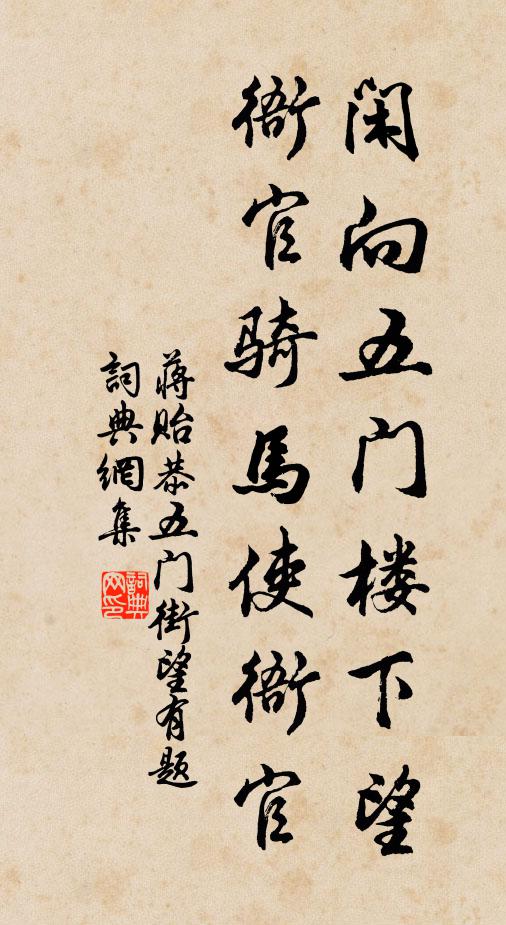 闲向五门楼下望
衙官骑馬使衙官
蒋贻恭五门街望有题
詞典網集
詞典网印